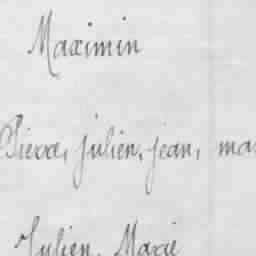 Maximin
Pierre, julien, jean, ma
Julien, Marie